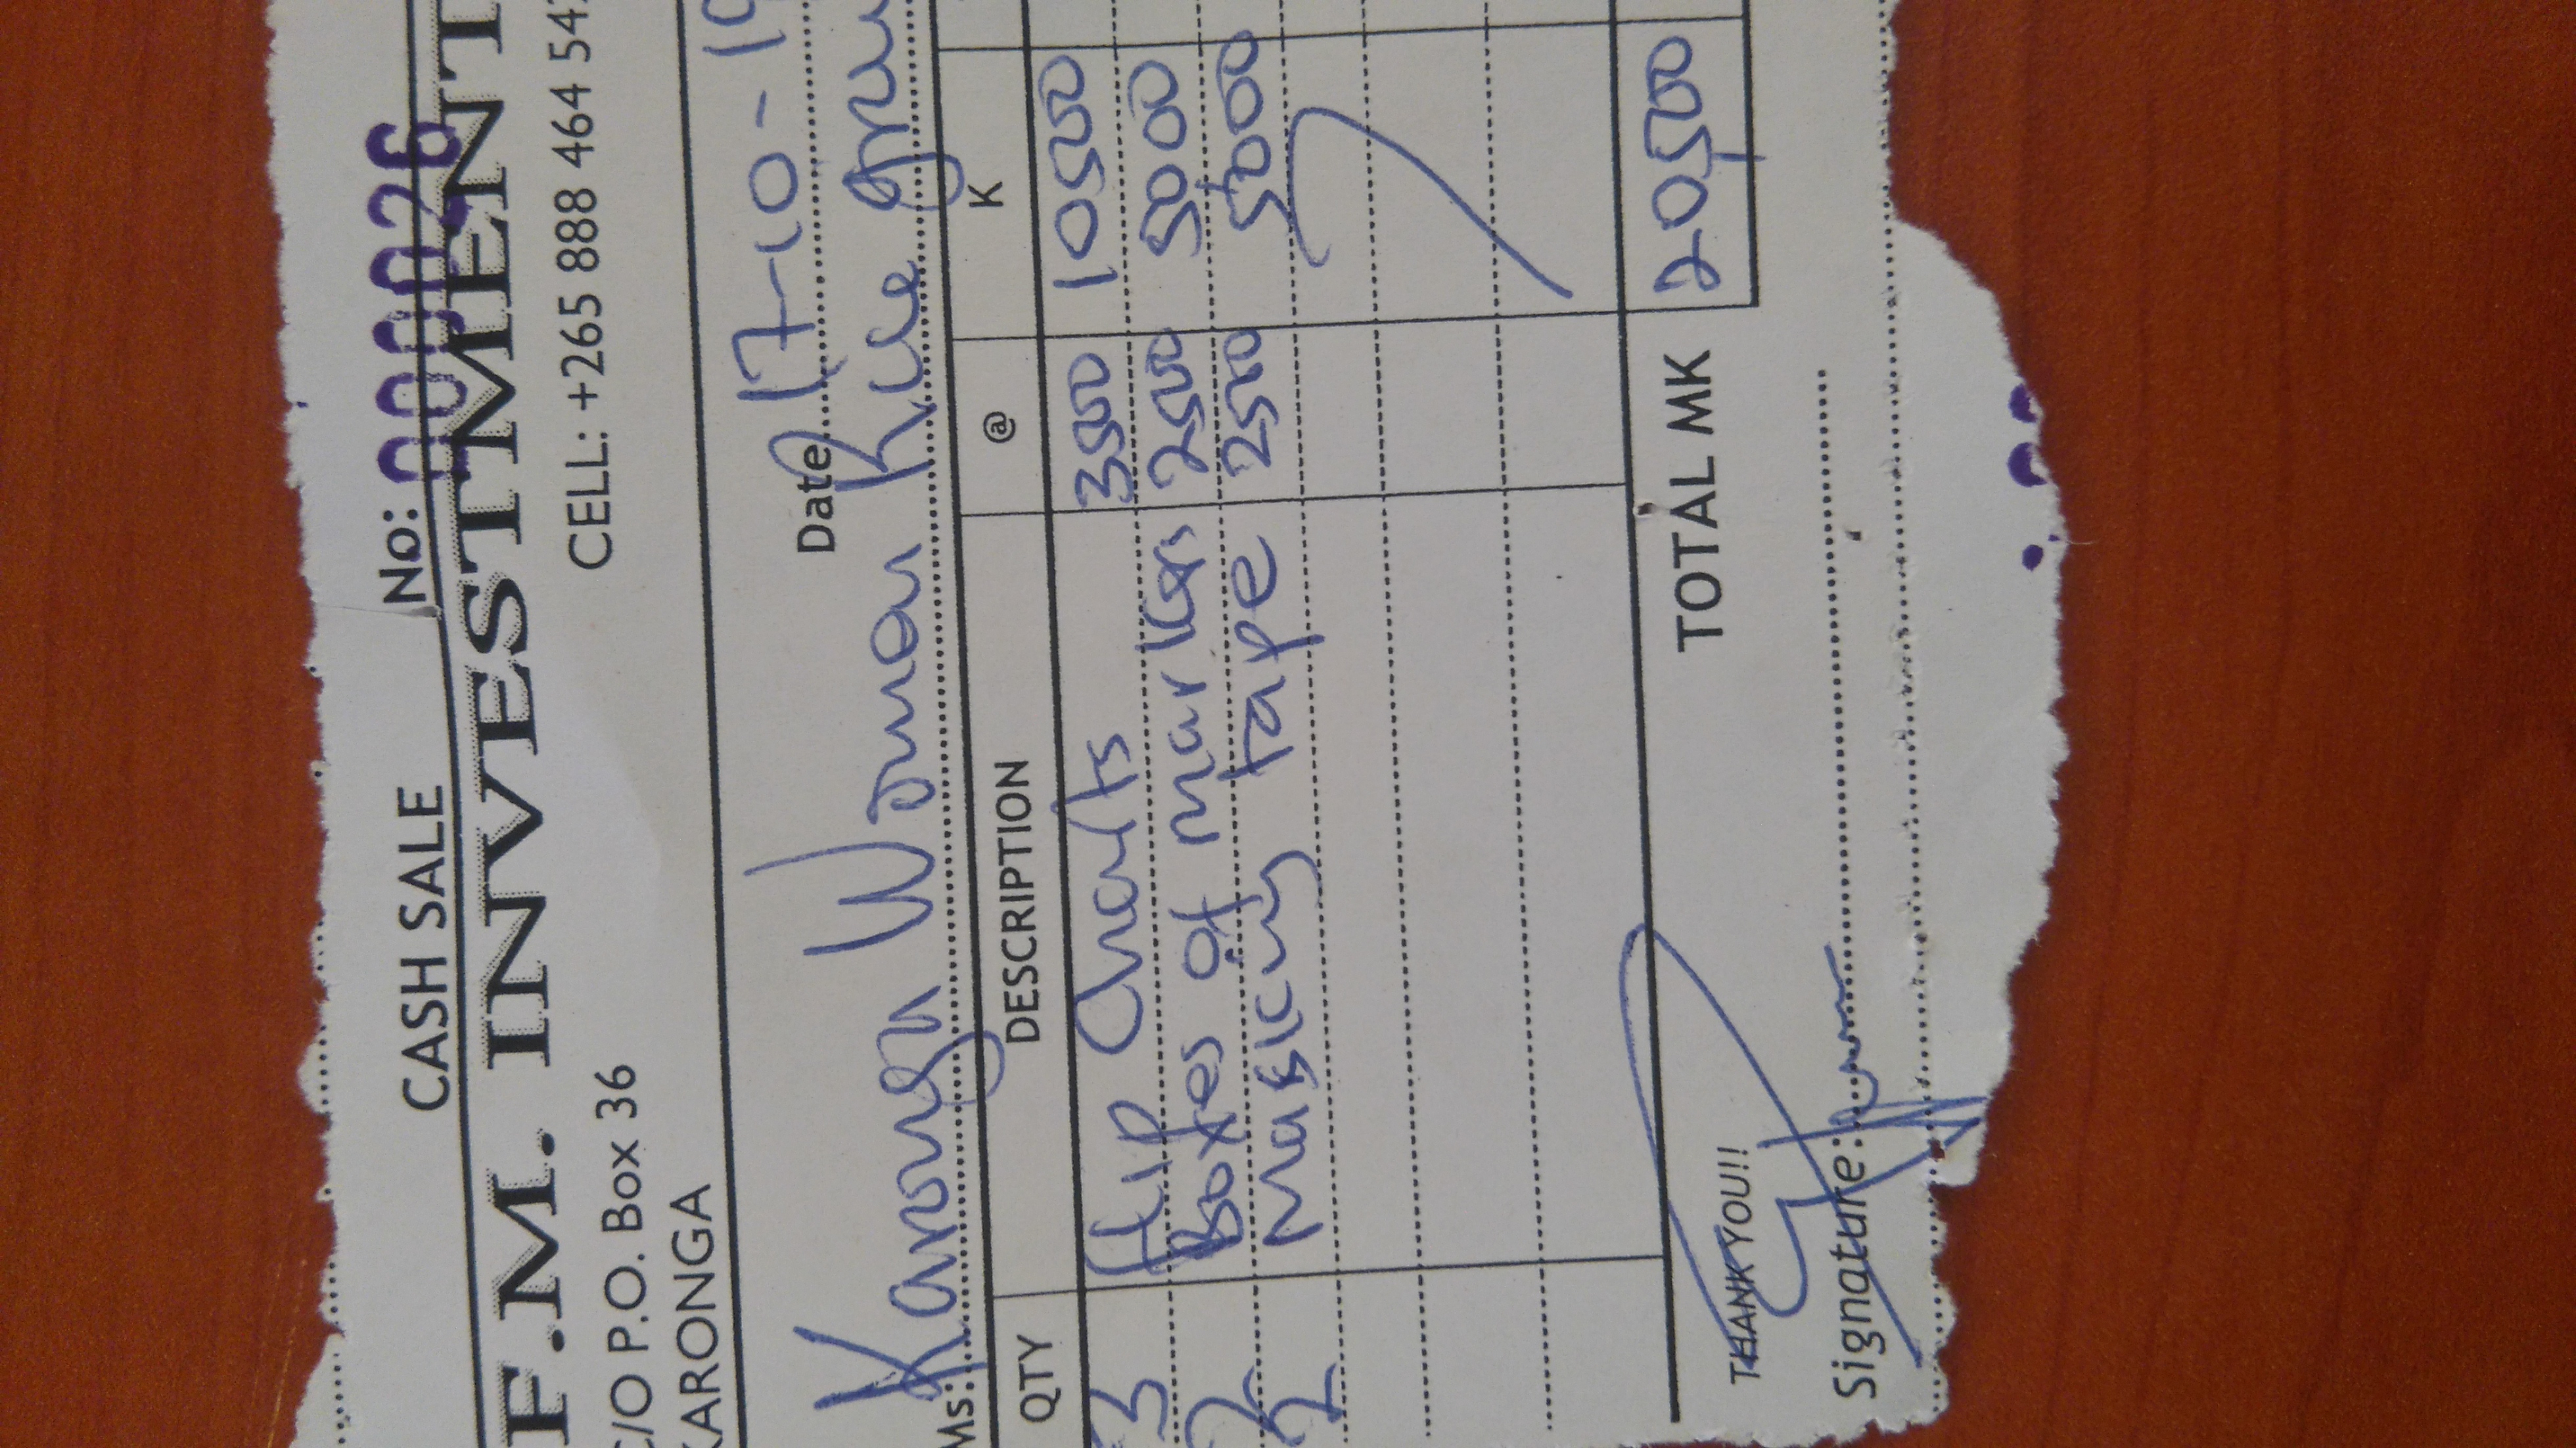 CASH SALE No: 000026
F.M. INVESTMENT
C/O P.O. Box 36
KARONGA
CELL: +265 888 464 54
Date 17-10-19
Ms: Karonga Women Rice
QTY DESCRIPTION @ K
3 flip Charts 3500 10500
2 Boxes of markers 2500 5000
2 Masking tape 2500 5000
TOTAL MK 20500
THANK YOU!!
Signature: